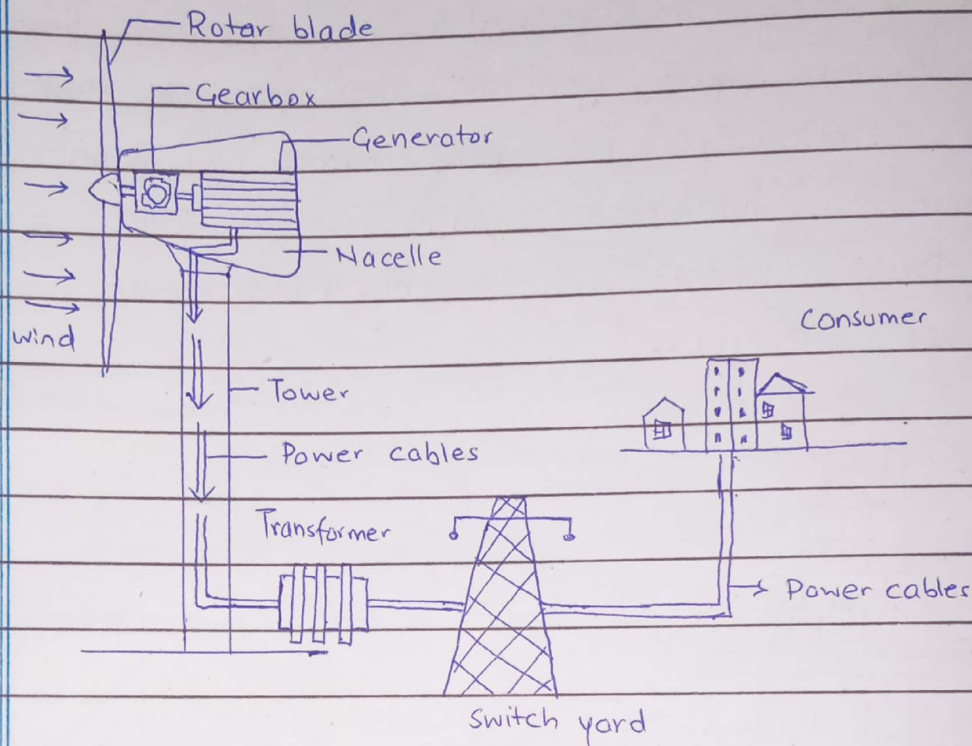 Rotor blade
Gearbox
Generator
Nacelle
Consumer
wind
Tower
Power cables
Transformer
Power cables
Switch yard